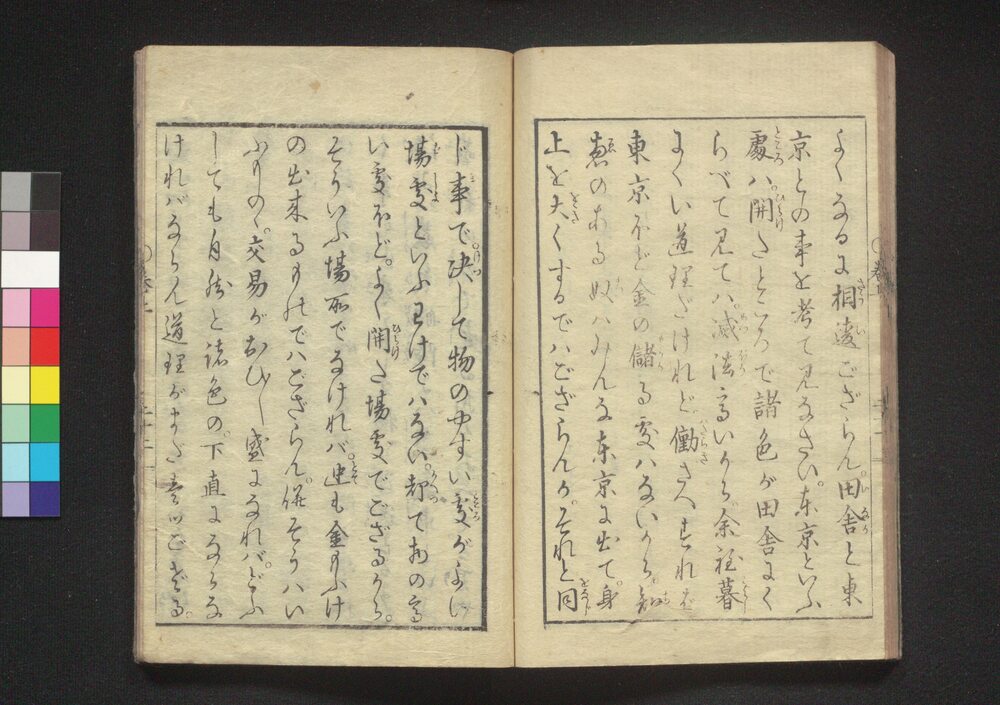 よくなるに相違ござらん。田舎と東
京との事を考て見なさい。東京といふ
處ハ。開たところで諸色が田舎にく
らべて見てハ。滅法高いから余程暮
にくい道理だけれど。働さへすれば
東京ほど金の儲る處ハないから。知
恵のある奴ハみんな東京に出て。身
上を大くするでハござらんか。それと同
じ事で。決して物のやすい處がよい
場處といふわけでハない。却てものゝ高
い處ほど。よく開た場處でござるから。
そういふ場所でなければ。迚も金もふけ
の出来るものでハござらん。併そうハい
ふものゝ。交易がおひ〳〵盛になれバ。どふ
しても自然と諸色の。下直にならな
ければならん道理がまた壱ツござる。